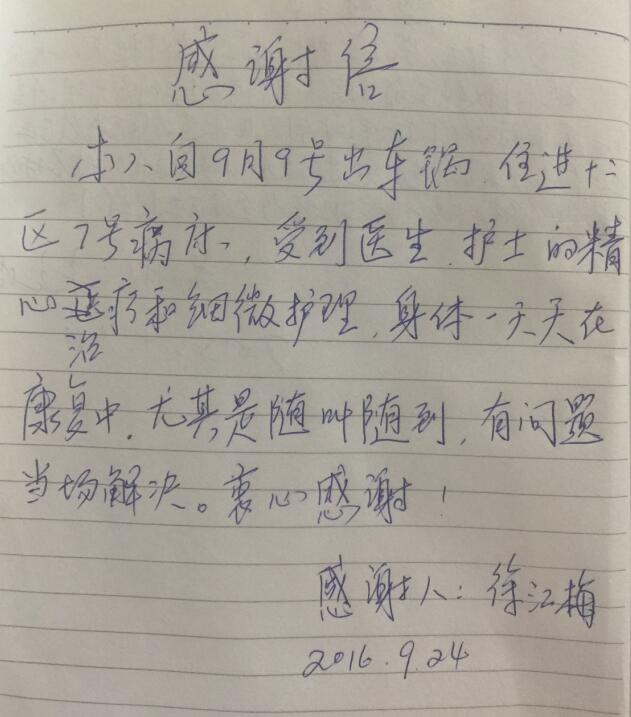 感谢信
本人自9月9号出车祸.住进十二
区7号病床,受到医生.护士的精
心治疗和细微护理,身体一天天在
康复中.尤其是随叫随到,有问题
当场解决。衷心感谢!
感谢人:徐江梅
2016.9.24